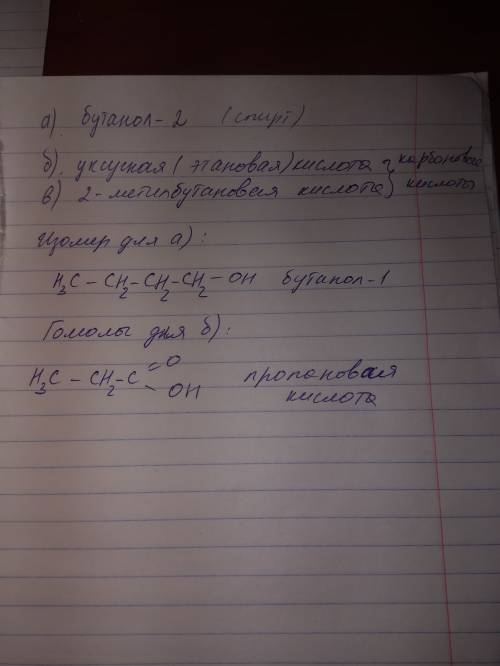 а) бутанол-2 (спирт)
б) уксусная (этановая) кислота } карбоновые
в) 2-метилбутановая кислота } кислоты
Изомер для а):
H₃C – CH₂ – CH₂ – CH₂ – OH бутанол-1
Гомолы для б):
H₃C – CH₂ – C
= O
– OH
пропановая
кислота